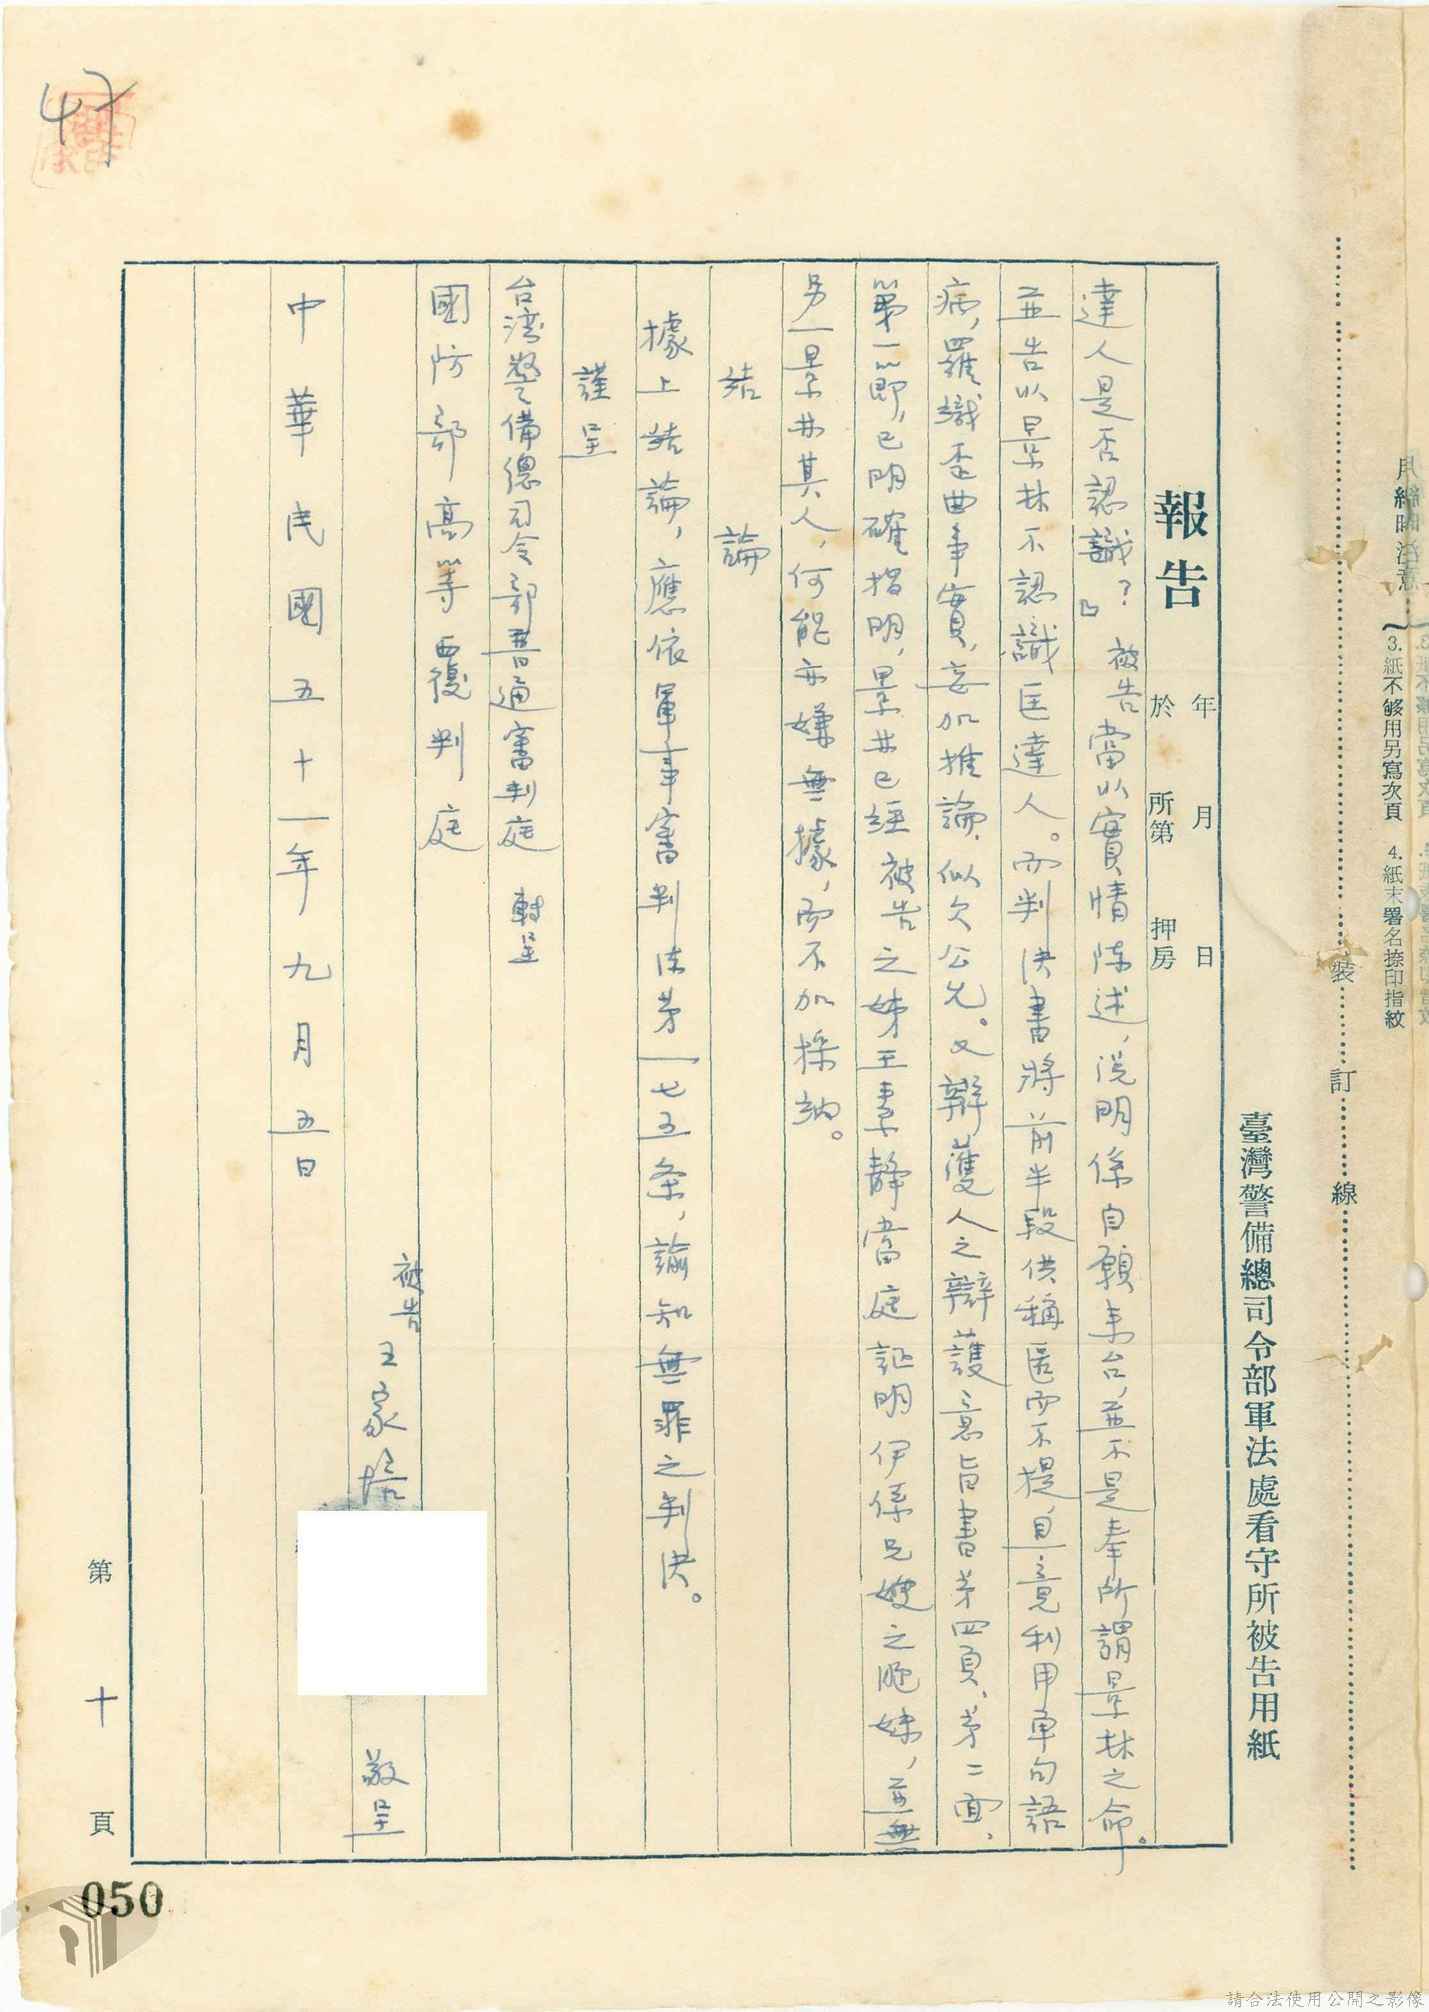 用紙時注意
3.紙不够用另寫次頁 4.紙末署名捺印指紋
裝 訂 線
臺灣警備總司令部軍法處看守所被告用紙
報告
年 月 日
於 所第 押房
達人是否認識?』被告當以實情陈述,説明係自願来台,並不是奉所謂景林之命。
並告以景林不認識匡達人。而判决書將前半段供稱匿而不提,且竟利用单句語
病,羅織歪曲事實,妄加推論,似欠公允。又辯護人之辯護意旨書苐四頁、苐二面、
第一節,已明確指明,景林已經被告之姊王素靜當庭証明伊係兄嫂之胞妹,並無
另一景林其人,何能亦嫌無據,而不加採納。
結論
據上結論,應依軍事審判法苐一七五条,諭知無罪之判决。
謹呈
台湾警備總司令部普通審判庭 轉呈
國防部高等覆判庭
被告 王家培 敬呈
中華民國五十一年九月五日
第十頁
47
050
請合法使用公開之影像